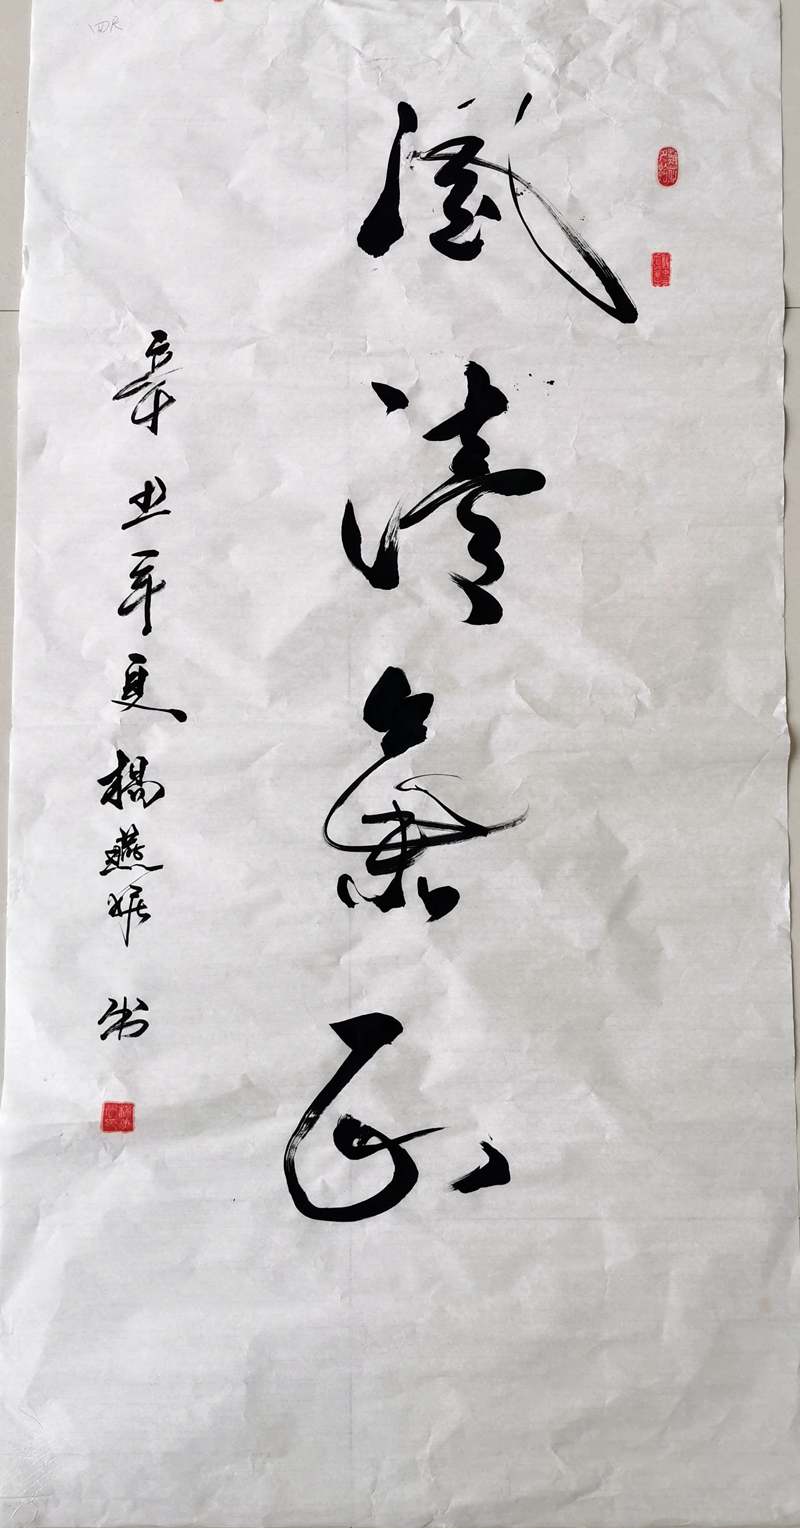 四尺
風清氣正
辛丑年夏 楊燕 书